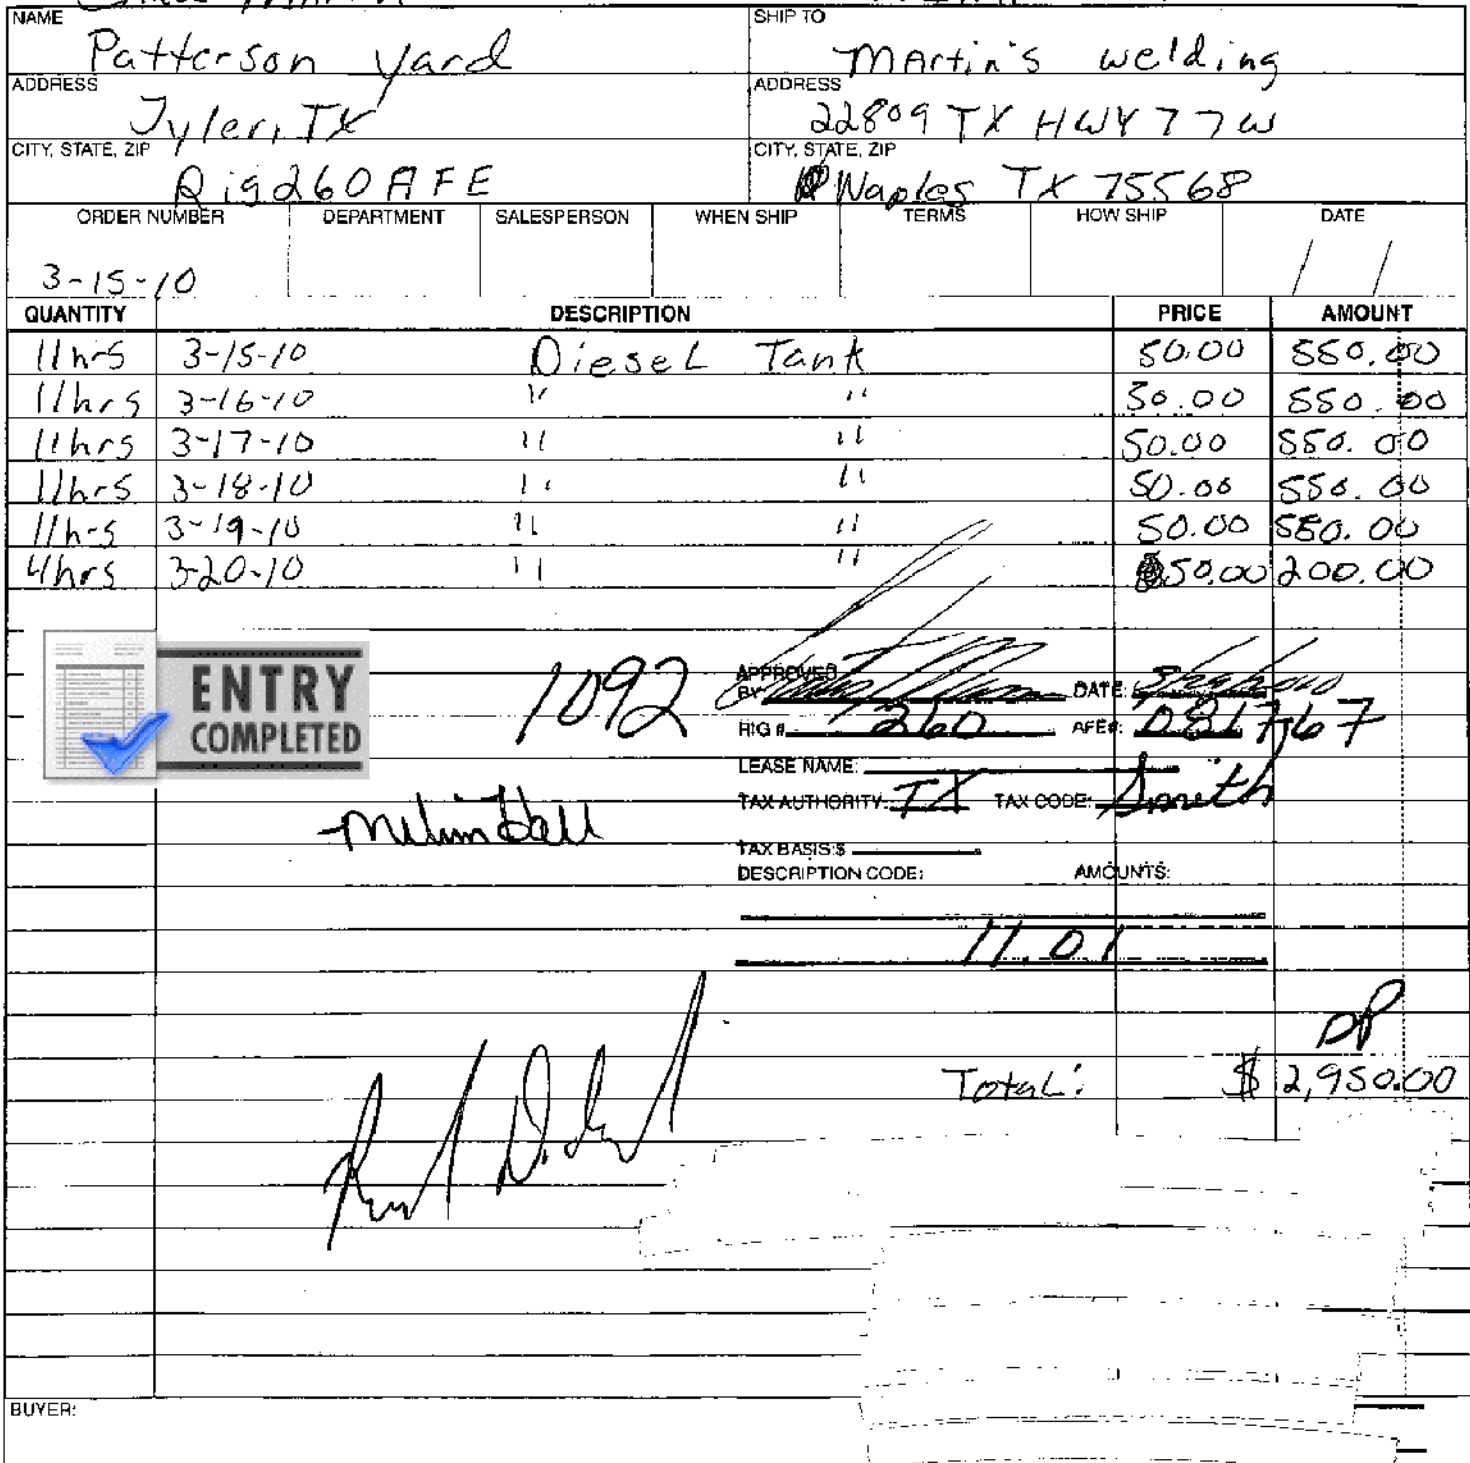 NAME
Patterson Yard
SHIP TO
Martin's welding
ADDRESS
Tyler, TX
ADDRESS
22809 TX HWY 77 W
CITY, STATE, ZIP
Rig 260 AFE
CITY, STATE, ZIP
Naples TX 75568
ORDER NUMBER DEPARTMENT SALESPERSON WHEN SHIP TERMS HOW SHIP DATE
3-15-10 / /
QUANTITY DESCRIPTION PRICE AMOUNT
11hrs 3-15-10 Diesel Tank 50.00 550.00
11hrs 3-16-10 " " 50.00 550.00
11hrs 3-17-10 " " 50.00 550.00
11hrs 3-18-10 " " 50.00 550.00
11hrs 3-19-10 " " 50.00 550.00
4hrs 3-20-10 " " 50.00 200.00
ENTRY
COMPLETED
1092
APPROVED
BY DATE:
RIG # 260 AFE#: 0817767
LEASE NAME:
TAX AUTHORITY: TX TAX CODE: Smith
TAX BASIS $
DESCRIPTION CODE: AMOUNTS:
11.01
DP
Total: $ 2,950.00
BUYER: